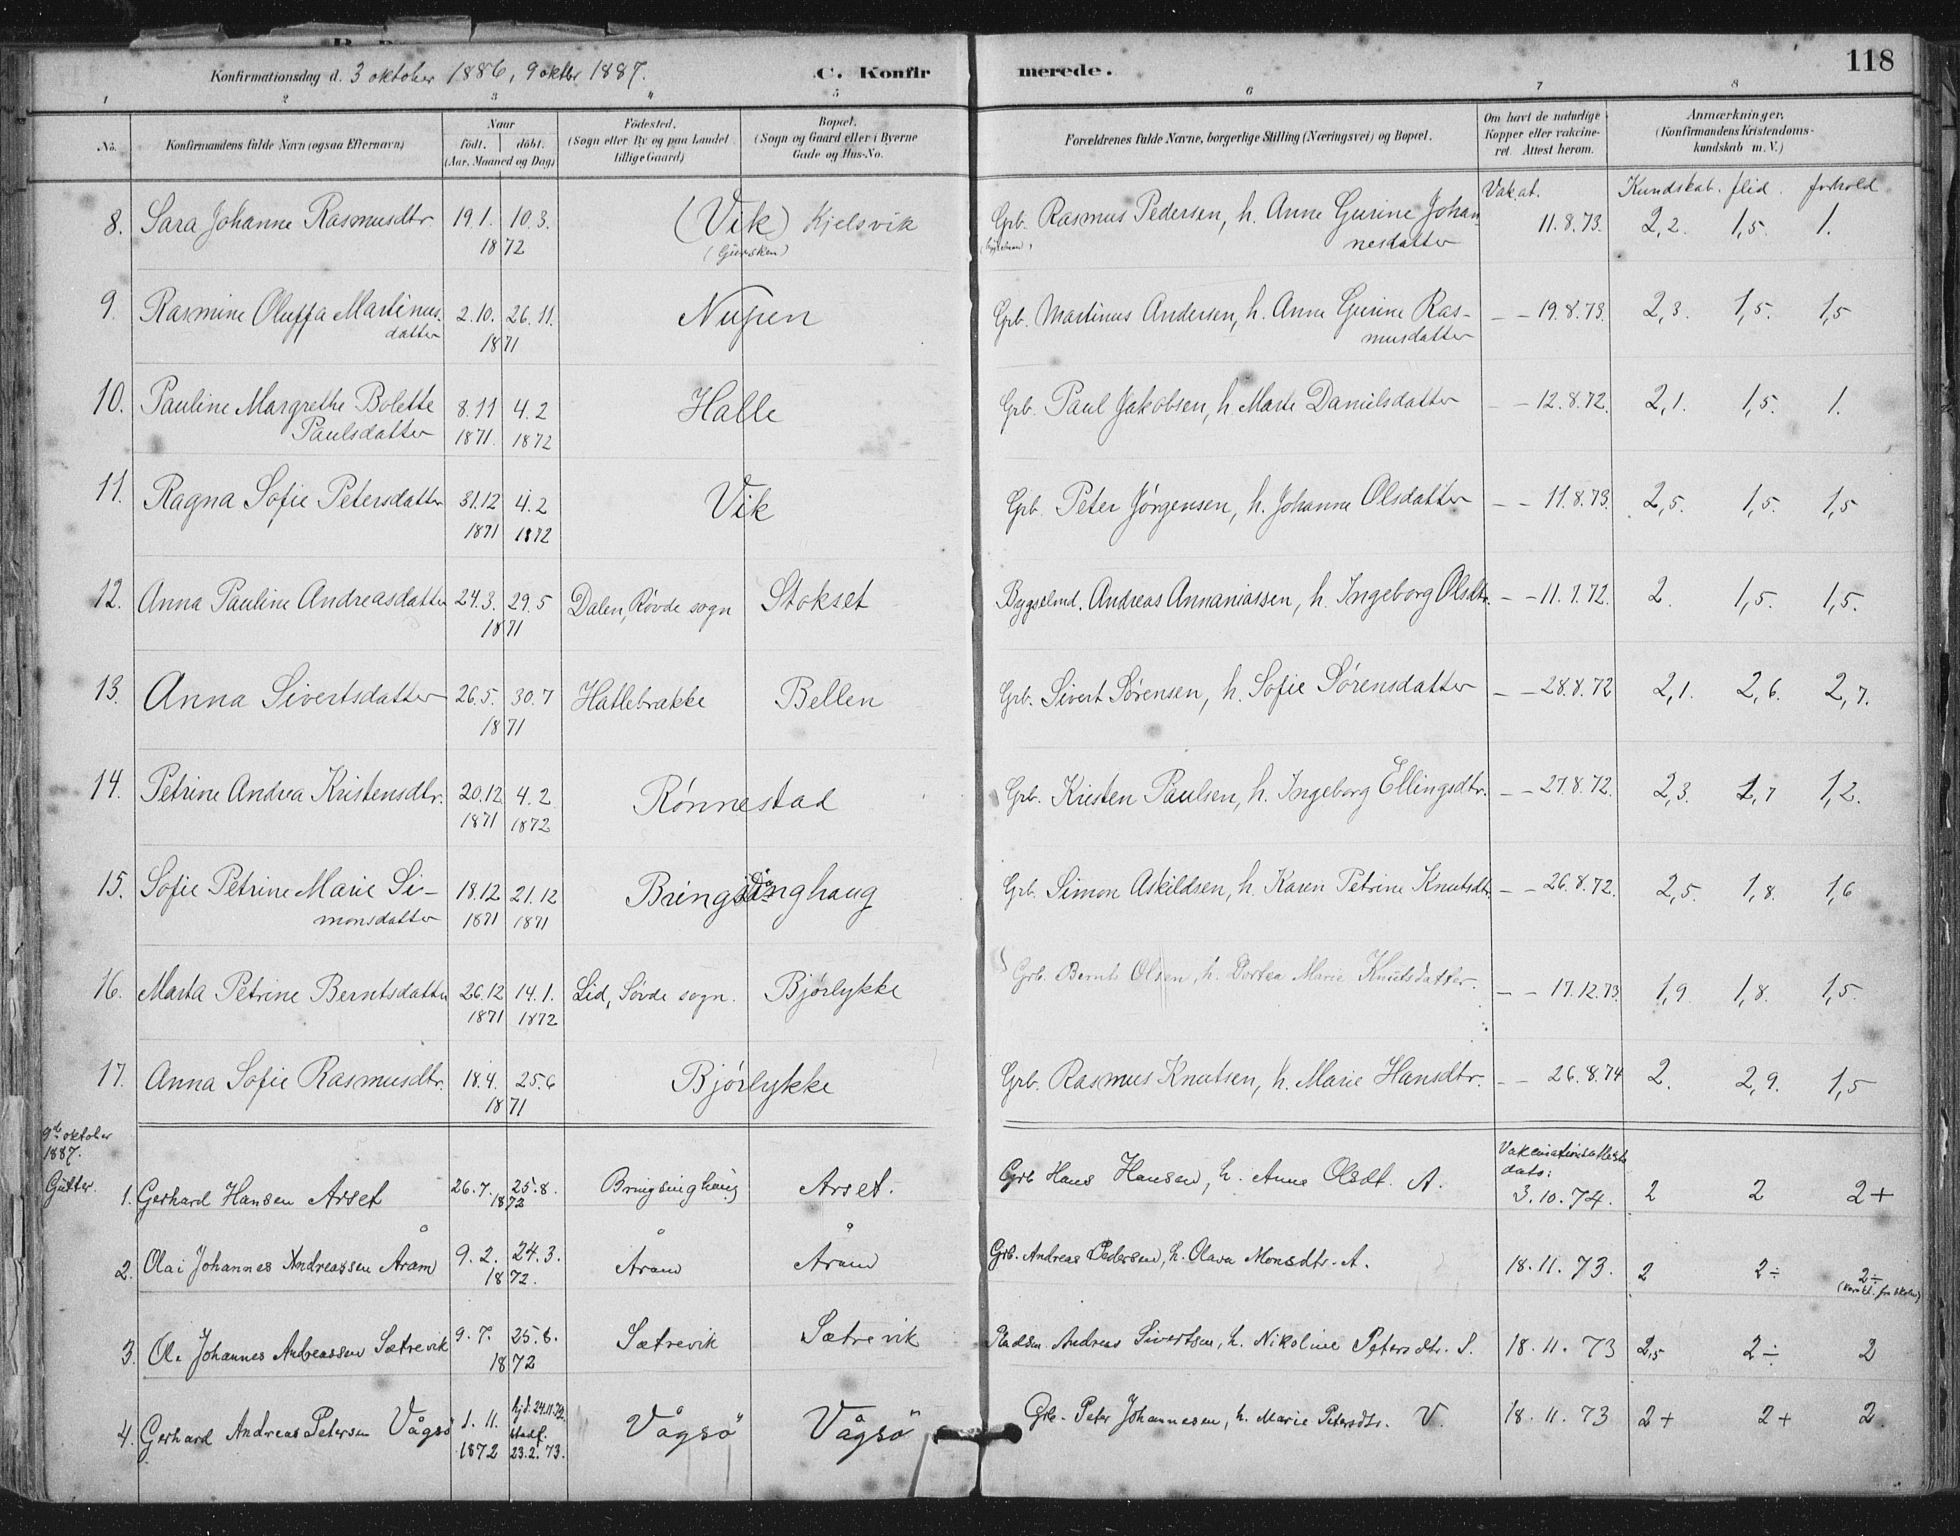 118
Konfirmationsdag d. 3 oktober 1886, 9 oktbr 1887. C. Konfirmerede.
1 2 3 4 5 6 7 8
No. Konfirmandens fulde Navn (ogsaa Efternavn) Naar født. døbt. (Aar, Maaned og Dag) Fødested. (Sogn eller By og paa Landet tillige Gaard) Bopæl. (Sogn og Gaard eller i Byerne Gade og Hus-No. Forældrenes fulde Navne, borgerlige Stilling (Næringsvei) og Bopæl. Om havt de naturlige Kopper eller vakcineret. Attest herom. Anmærkninger. (Konfirmandens Kristendomskundskab m. V.)
Vak.at. Kundskab. flid. forhold
8. Sara Johanne Rasmusdtr. 19.1. 10.3. (Vik) Kjelsvik Grb. Rasmus Pedersen, h. Anne Gurine Johan- 11.8.73. 2,2. 1,5. 1.
1872 (Gursken) nesdatter
9. Rasmine Oluffa Martinus- 2.10. 26.11. Nupen Grb. Martinus Andersen, h. Anne Gurine Ras- – – 19.8.73. 2,3. 1,5. 1,5
datter 1871 musdatter
10. Pauline Margrethe Bolette 8.11 4.2 Halle Grb. Paul Jakobsen, h. Marte Danielsdatter – – 12.8.72. 2,1. 1,5. 1.
Paulsdatter 1871. 1872
11. Ragna Sofie Petersdatter 31.12 4.2 Vik Grb. Peter Jørgensen, h. Johanne Olsdatter – – 11.8.73. 2,5. 1,5. 1,5
1871 1872
12. Anna Pauline Andreasdatter 24.3. 29.5 Dalen, Røvde sogn Stokset Bygselmd. Andreas Annaniassen, h. Ingeborg Olsdtr. – – 11.7.72. 2. 1,5. 1,5.
1871
13. Anna Sivertsdatter 26.5. 30.7 Hatlebrække Bellen Grb. Sivert Sørensen, h. Sofie Sørensdatter – – 28.8.72 2,1. 2,6. 2,7.
1871
14. Petrine Andrea Kristensdtr. 20.12 4.2 Rønnestad Grb. Kristen Paulsen, h. Ingeborg Ellingsdtr. – – 27.8.72. 2,3. 1,7 1,2.
1871 1872
15. Sofie Petrine Marie Si- 18.12 21.12 Bringsinghaug Grb. Simon Askildsen, h. Karen Petrine Knutsdtr. – – 26.8.72. 2,5. 1,8. 1,6
monsdatter 1871 1871
16. Marta Petrine Berntsdatter 26.12 14.1. Lid, Søvde sogn. Bjørlykke Grb. Bernt Olsen, h. Dortea Marie Knutsdatter. – – 17.12.73. 1,9. 1,8. 1,5.
1871 1872
17. Anna Sofie Rasmusdtr. 18.4. 25.6 Bjørlykke Grb. Rasmus Knutsen, h. Marie Hansdtr. – – 26.8.74 2. 2,9. 1,5
1871
9de oktober
1887.
Gutter. Vakcinationsattests dato:
1. Gerhard Hansen Arset 26.7. 25.8. Bringsinghaug Arset. Grb Hans Hansen, h. Anne Olsdt. A. 3.10.74. 2 2 2+
1872
2. Olai Johannes Andreassen Åram 9.2. 24.3. Åram Åram Grb. Andreas Pedersen, h. Olava Monsdtr. A. 18.11.73. 2 2÷ 2÷
1872.
3. Ole Johannes Andreassen Sætrevik 9.7. 25.8. Sætrevik Sætrevik Pladsm. Andreas Sivertsen, h. Nikoline Petersdtr. S. 18.11.73 2,5 2÷ 2
1872
4. Gerhard Andreas Petersen Vågsö 1.11. hjd. 24.11.72. Vågsö Vågsö Grb. Peter Johannesen, h. Marie Petersdtr. V. 18.11.73 2+ 2+ 2.
1872 stadf. 23.2.73.